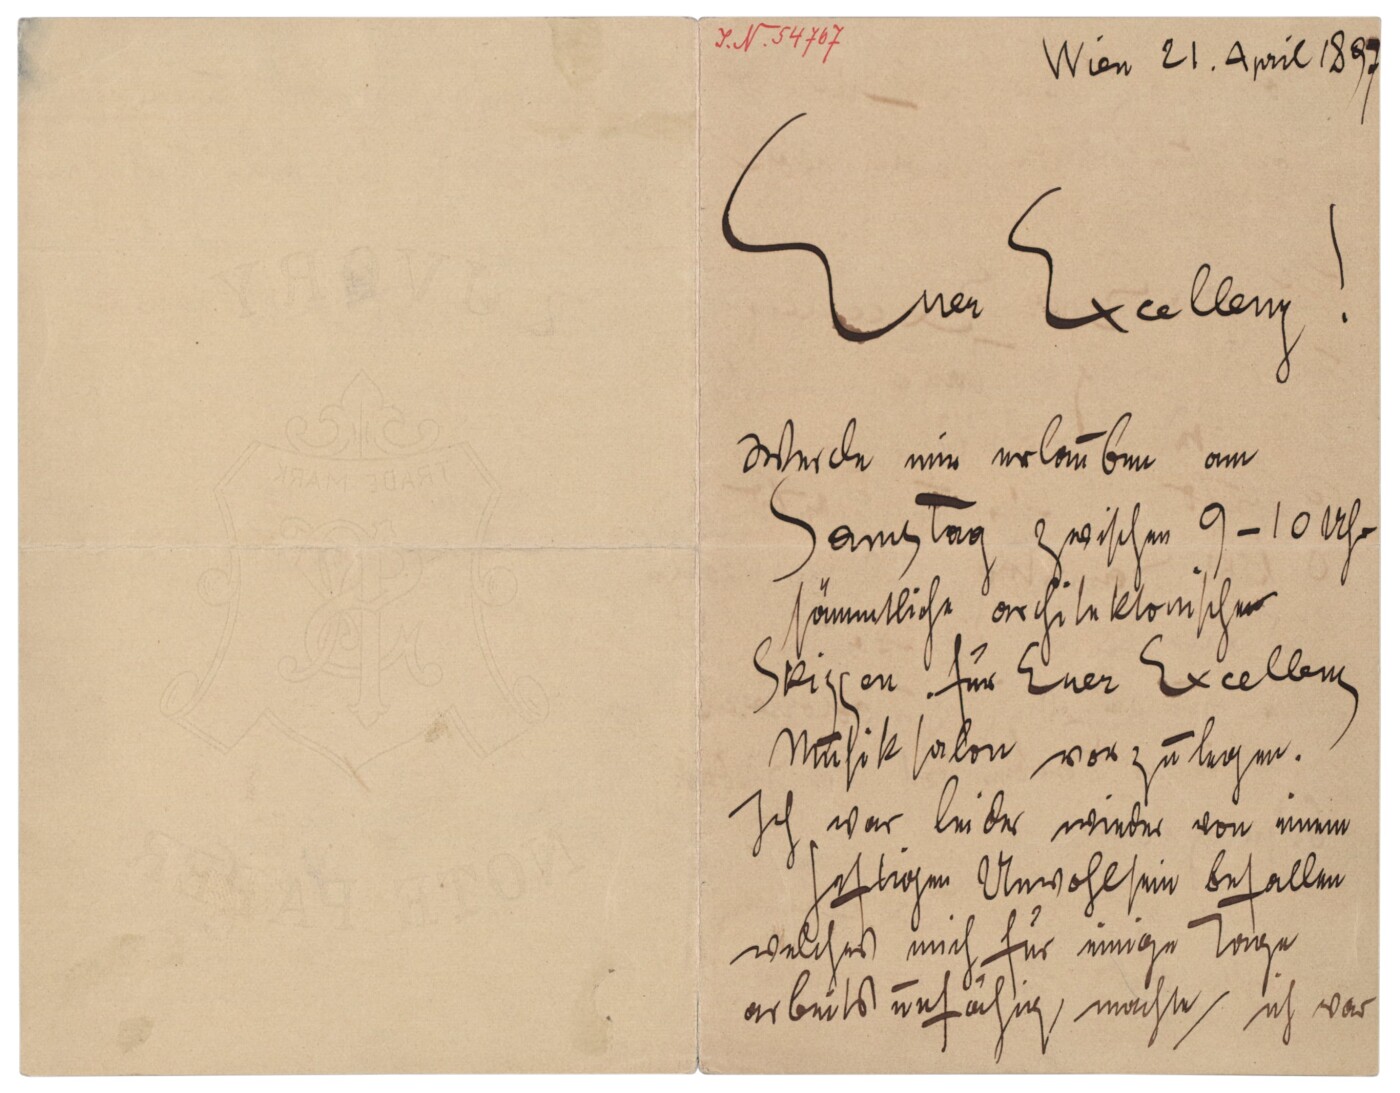 J.N. 54767
Wien 21. April 1897
Euer Excellenz!
Werde mir erlauben am
Samstag zwischen 9–10 Uhr
sämmtliche architektonischen
Skizzen für Euer Excellenz
Musiksalon vorzulegen.
Ich war leider wieder von einem
heftigen Unwohlsein befallen
welches mich für einige Tage
arbeitsunfähig, machte, ich war
IVORY
TRADE MARK
NOTE PAPER